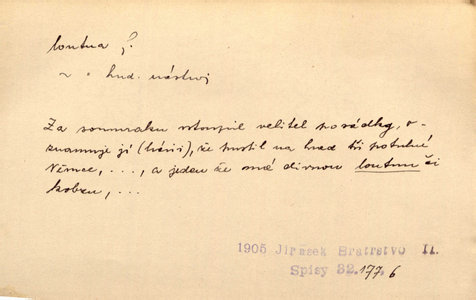 loutna f.
~ = hud. nástroj
Za soumraku vstoupil velitel posádky, o-
znamuje jí (hráni), že pustil na hrad tři potulné
Němce, ..., a jeden že má divnou loutnu či
kobzu, ...
1905 Jirásek Bratrstvo II.
Spisy 32.177.6